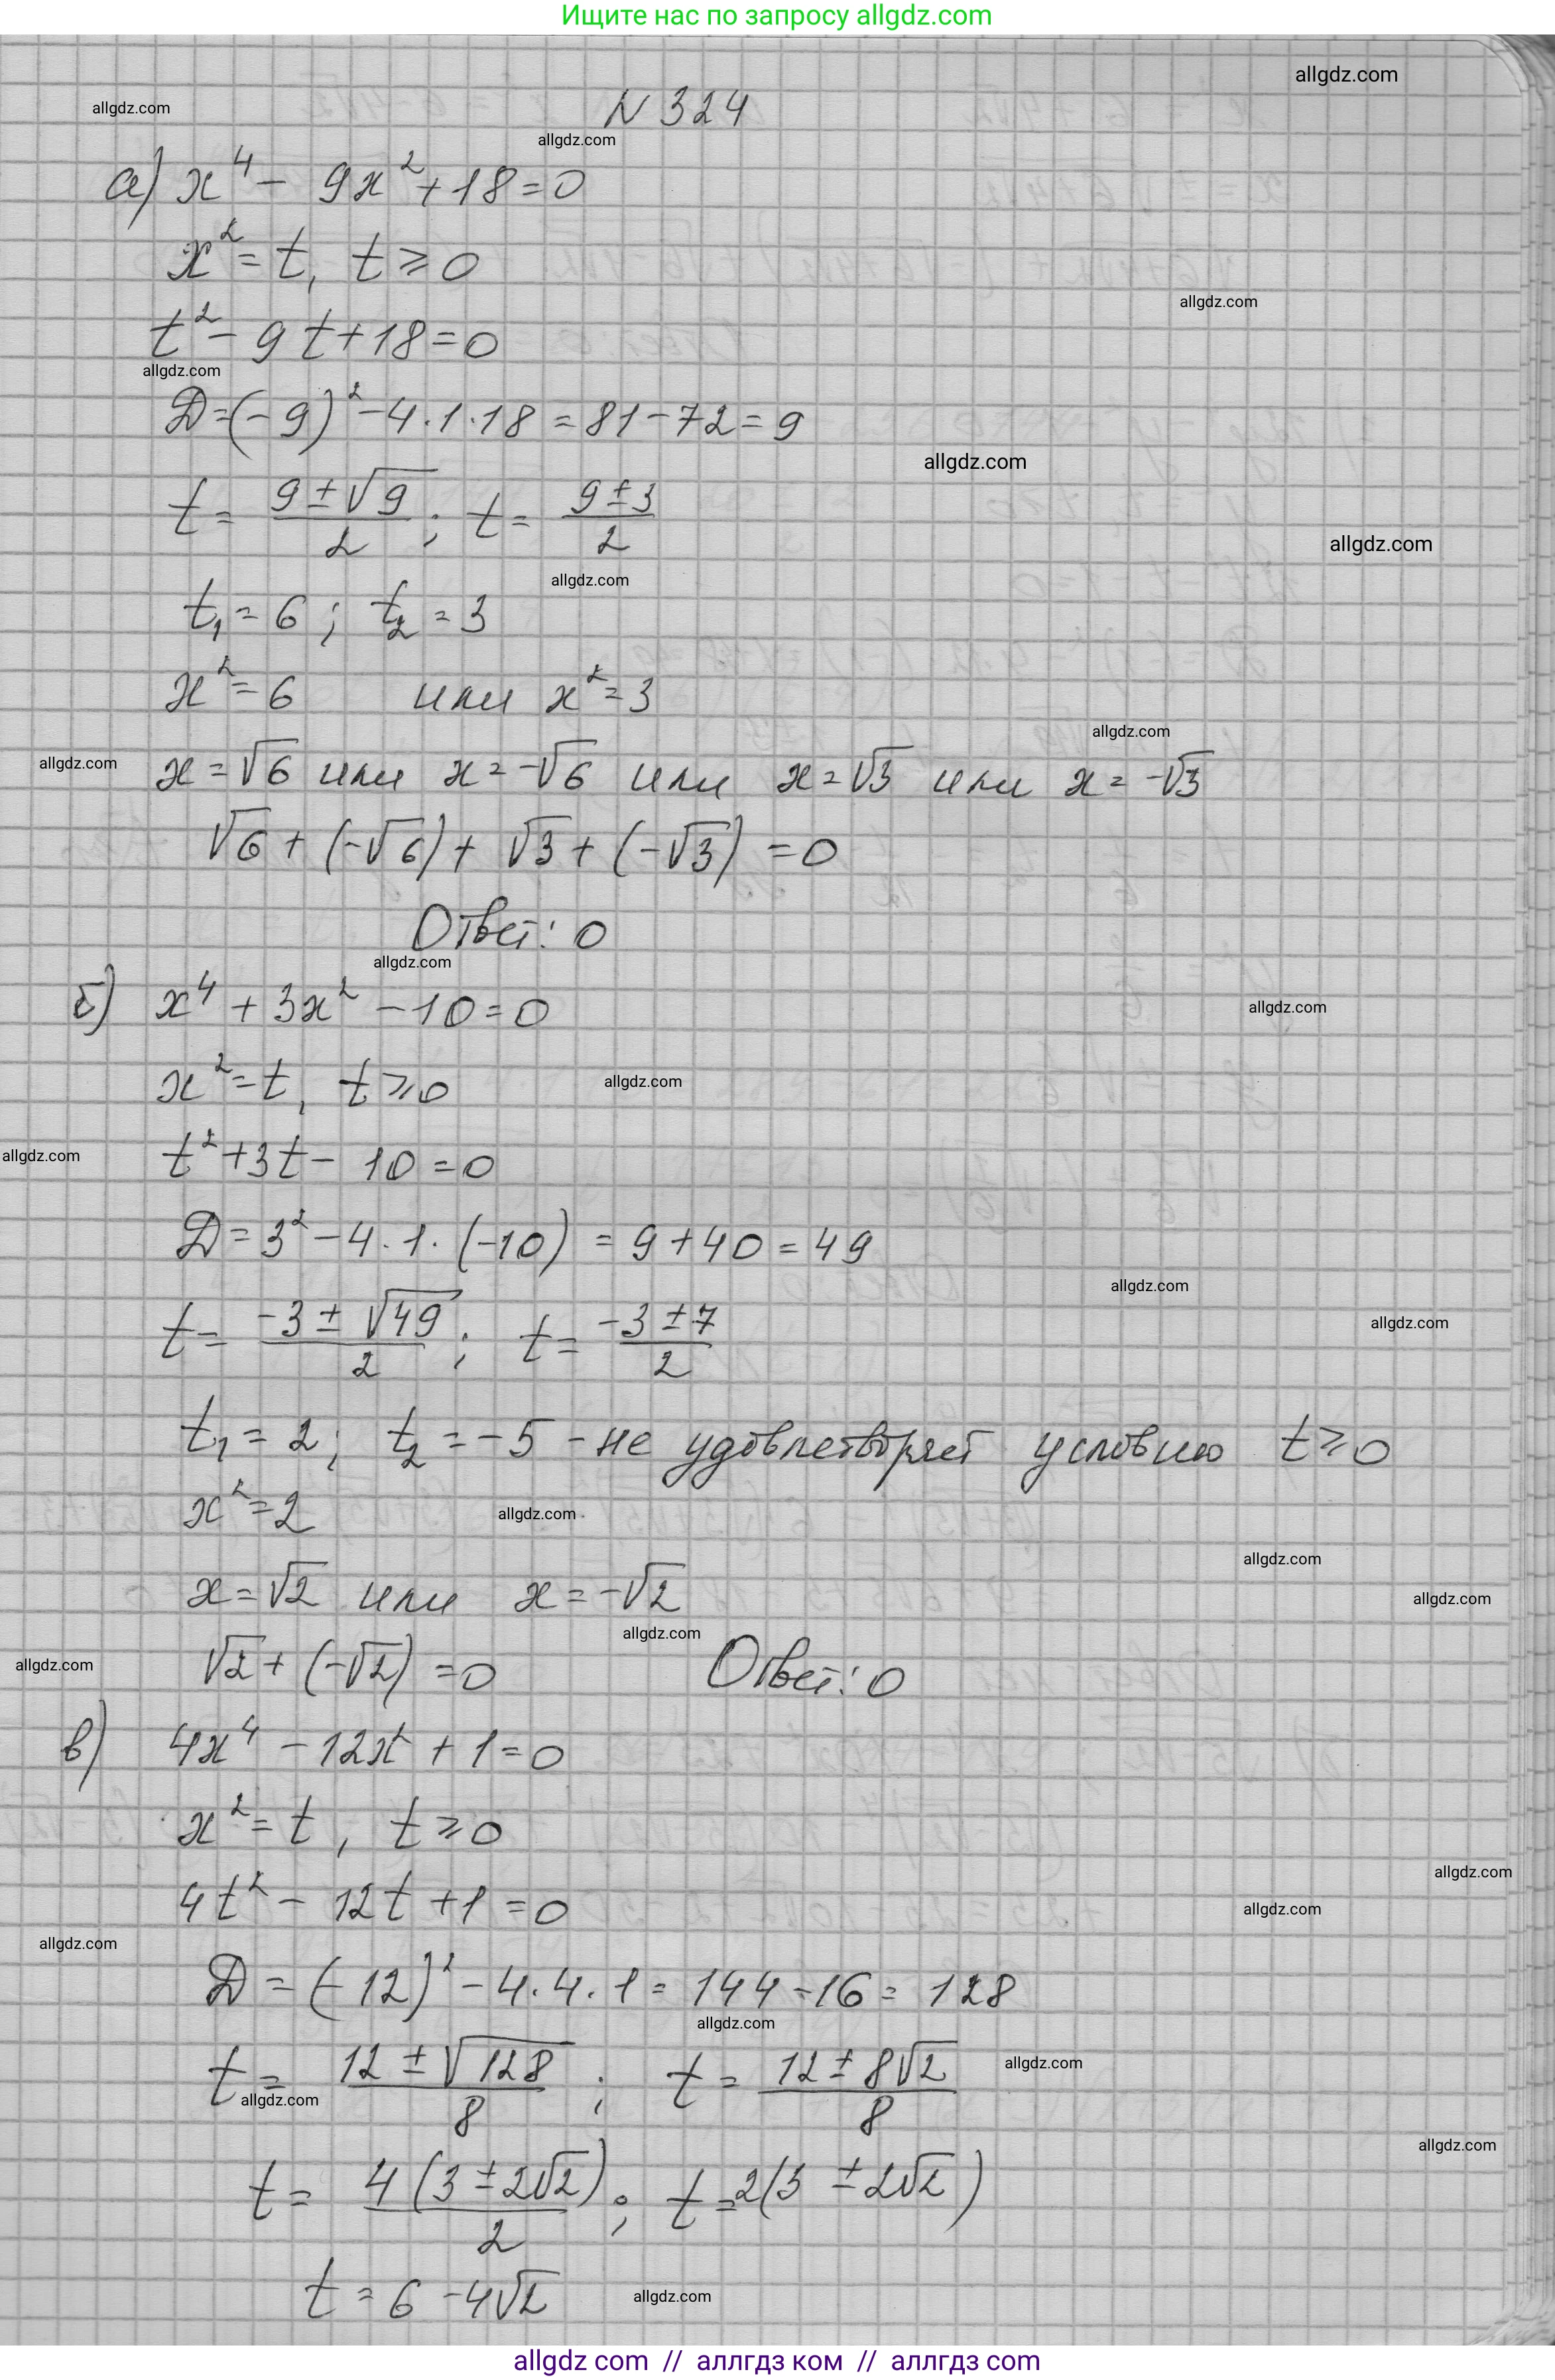 Ищите нас по запросу allgdz.com
allgdz.com
allgdz.com
N 324
allgdz.com
а) x⁴ - 9x² + 18 = 0
x² = t, t ⩾ 0
allgdz.com
t² - 9t + 18 = 0
allgdz.com
Д = (-9)² - 4·1·18 = 81 - 72 = 9
allgdz.com
t = (9 ± √9)/2 ; t = (9 ± 3)/2
allgdz.com
allgdz.com
t₁ = 6 ; t₂ = 3
x² = 6 или x² = 3
allgdz.com
allgdz.com
x = √6 или x = -√6 или x = √3 или x = -√3
√6 + (-√6) + √3 + (-√3) = 0
Ответ: 0
allgdz.com
б) x⁴ + 3x² - 10 = 0
allgdz.com
x² = t, t ⩾ 0
allgdz.com
allgdz.com
t² + 3t - 10 = 0
Д = 3² - 4·1·(-10) = 9 + 40 = 49
allgdz.com
allgdz.com
t = (-3 ± √49)/2 ; t = (-3 ± 7)/2
t₁ = 2; t₂ = -5 - не удовлетворяет условию t ⩾ 0
x² = 2
allgdz.com
allgdz.com
x = √2 или x = -√2
allgdz.com
allgdz.com
allgdz.com
√2 + (-√2) = 0 Ответ: 0
в) 4x⁴ - 12x² + 1 = 0
x² = t, t ⩾ 0
allgdz.com
4t² - 12t + 1 = 0
allgdz.com
allgdz.com
Д = (-12)² - 4·4·1 = 144 - 16 = 128
allgdz.com
t = (12 ± √128)/8 ; t = (12 ± 8√2)/8
allgdz.com
allgdz.com
allgdz.com
t = 4(3 ± 2√2)/2 ; t = 2(3 ± 2√2)
t = 6 - 4√2
allgdz.com
allgdz com // аллгдз ком // аллгдз com